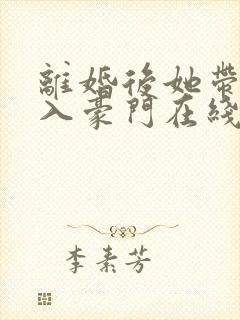 離婚後她帶
入豪門在綫
李素芳